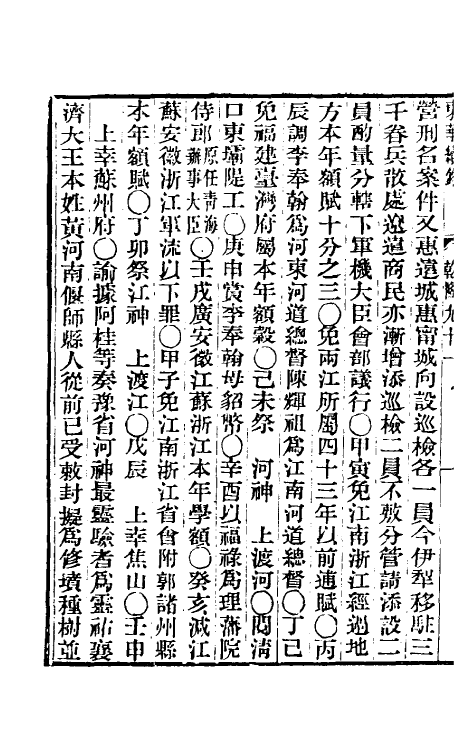 營刑名案件又惠遠城惠甯城向設巡檢各一員今伊犂移駐三
千眷兵散處遼遠商民亦漸增添巡檢二員不敷分管請添設二
員酌量分轄下軍機大臣會部議行〇甲寅免江南浙江經過地
方本年額賦十分之三〇免兩江所屬四十三年以前逋賦〇丙
辰調李奉翰爲河東河道總督陳輝祖爲江南河道總督〇丁巳
免福建臺灣府屬本年額穀〇己未祭 河神 上渡河〇閱清
口東壩隄工〇庚申賞李奉翰母貂幣〇辛酉以福祿爲理藩院
侍郎原任青海辦事大臣〇壬戌廣安徽江蘇浙江本年學額〇癸亥減江
蘇安徽浙江軍流以下罪〇甲子免江南浙江省會附郭諸州縣
本年額賦〇丁卯祭江神 上渡江〇戊辰 上幸焦山〇壬申
上幸蘇州府〇諭據阿桂等奏豫省河神最靈驗者爲靈祐襄
濟大王本姓黃河南偃師縣人從前已受敕封擬爲修墳種樹並